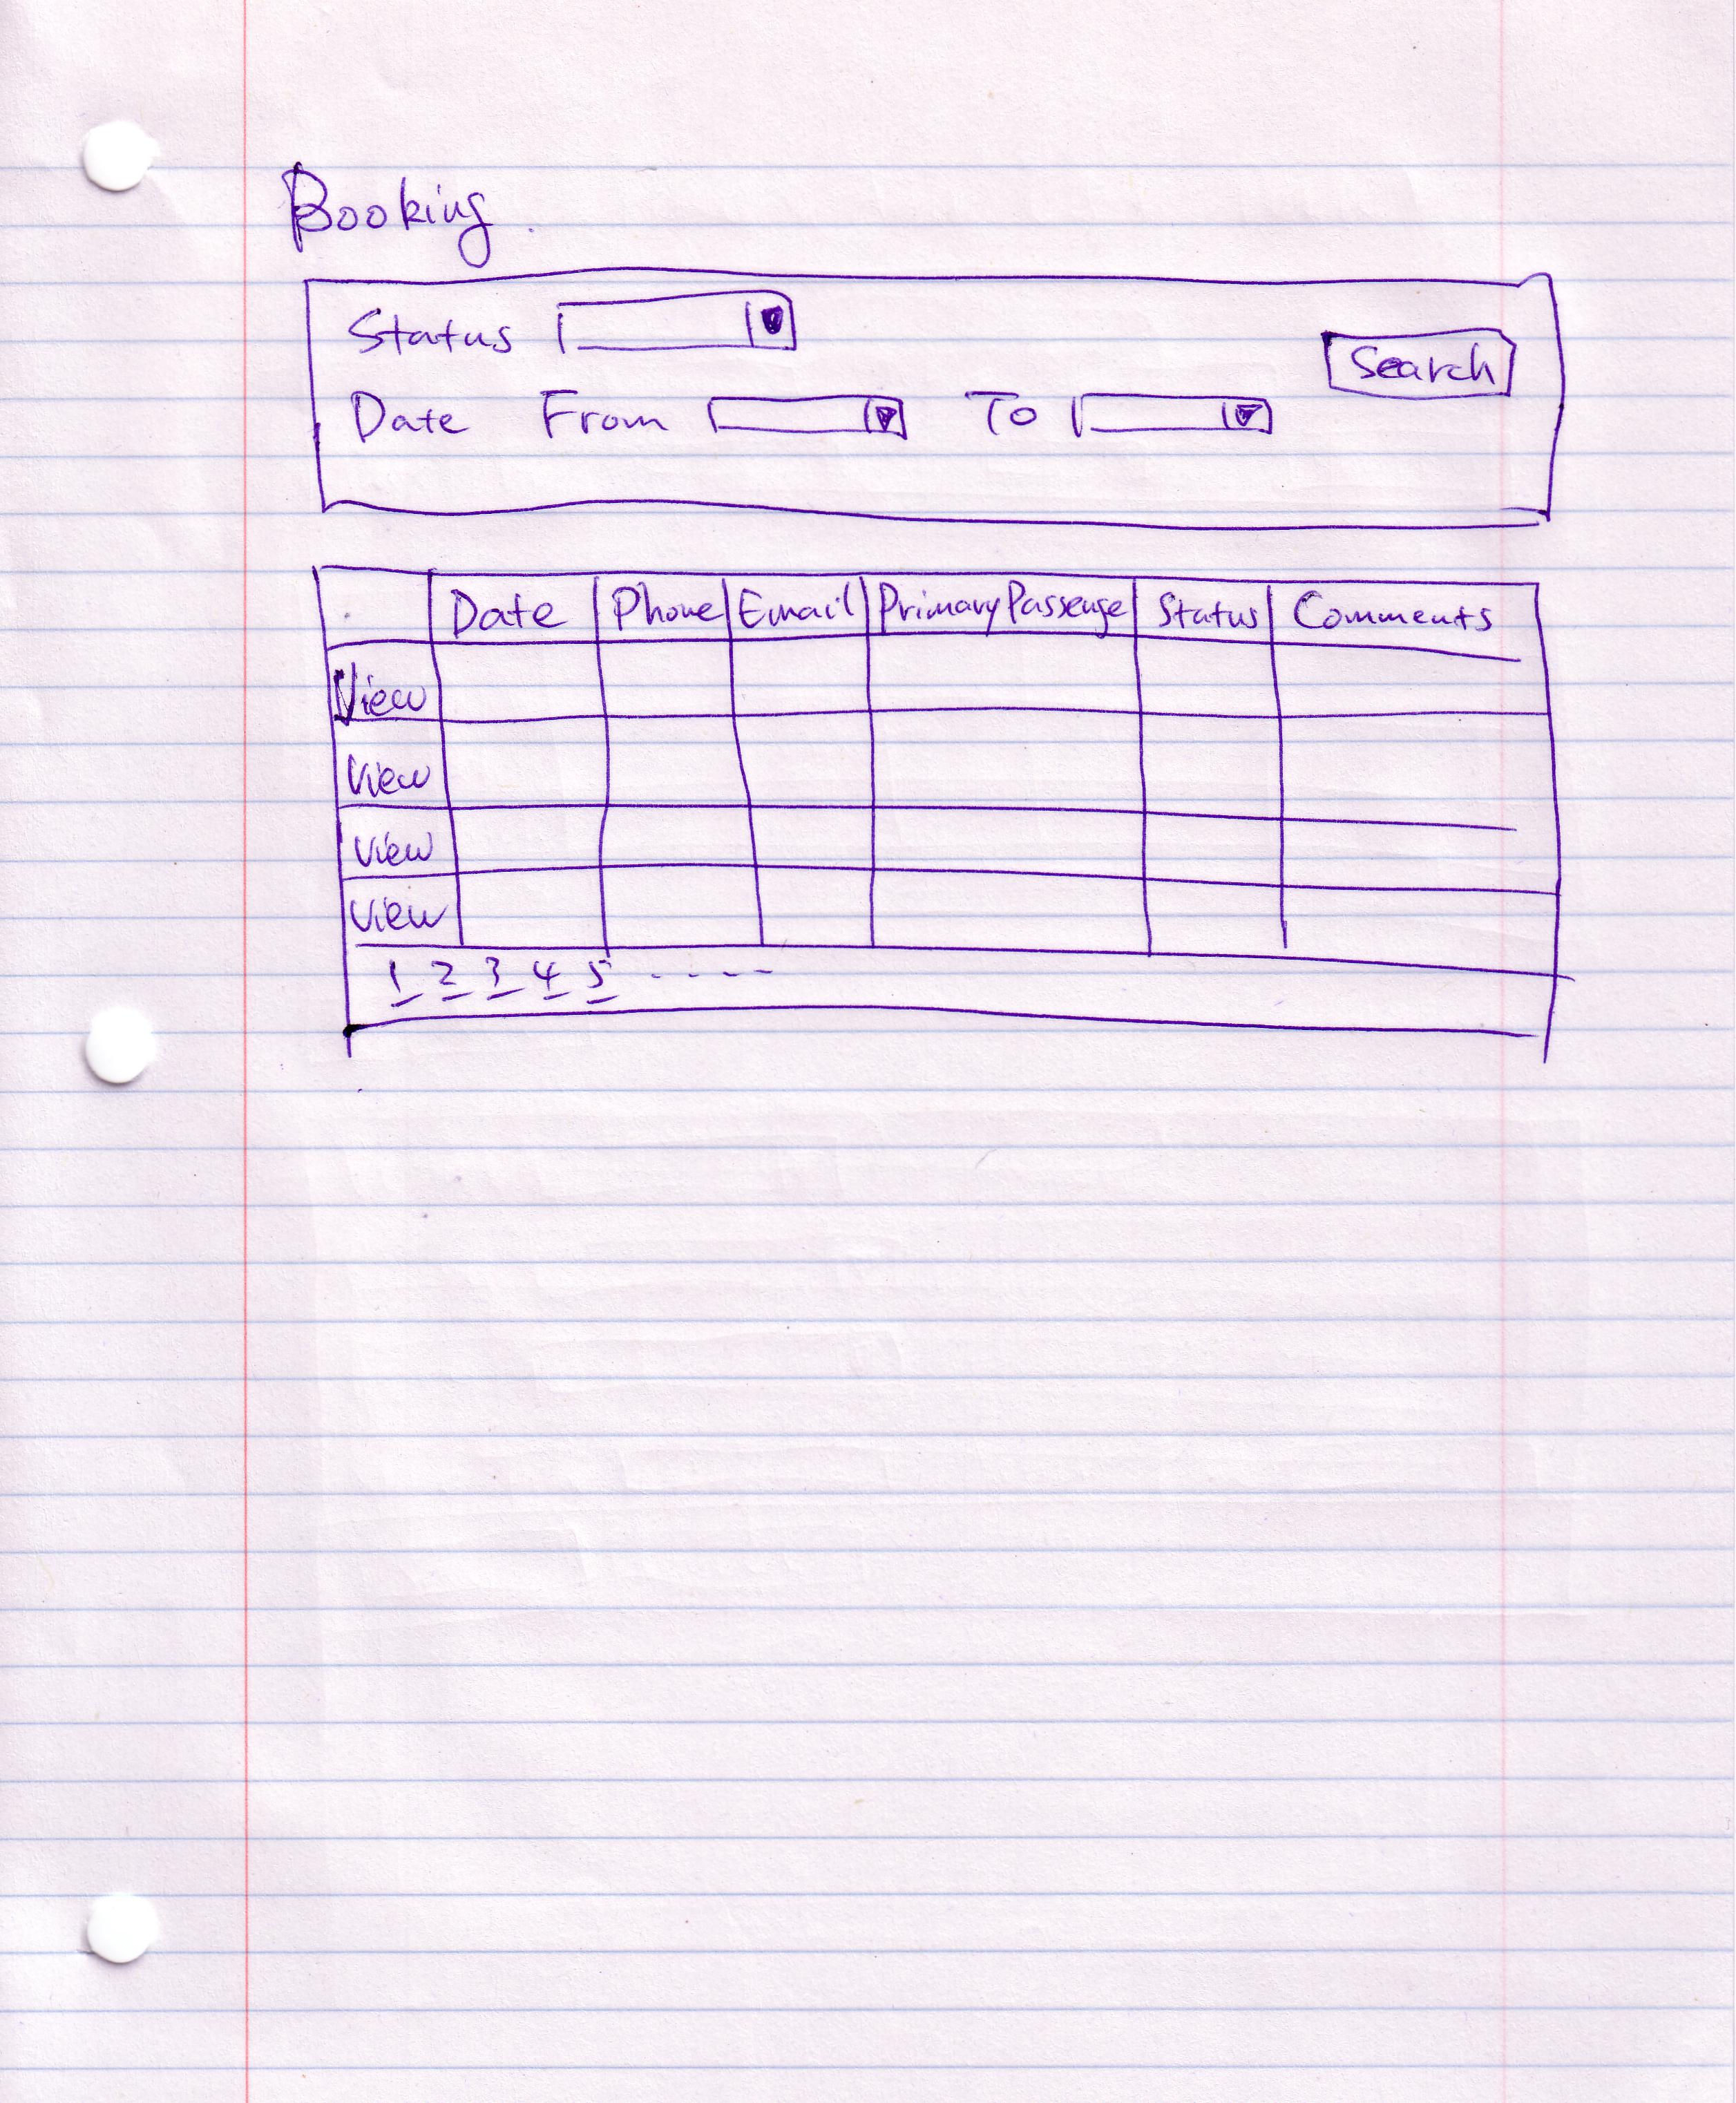 Booking
Status
Search
Date From To
Date Phone Email Primary Passenge Status Comments
View
View
View
View
1 2 3 4 5 - - - -